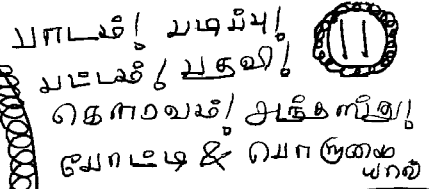 பாடம்! படிப்பு! 11
பட்டம்! பதவி!
கௌரவம்! அந்தஸ்து!
போட்டி & பொறாமை